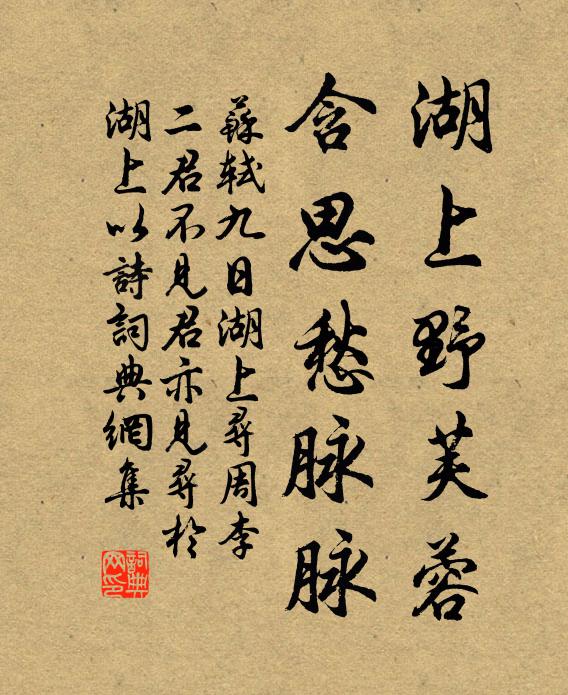 湖上野芙蓉
含思愁脉脉
蘇軾九日湖上尋周李
二君不見君亦見尋於
湖上以詩詞典網集
詞典网印